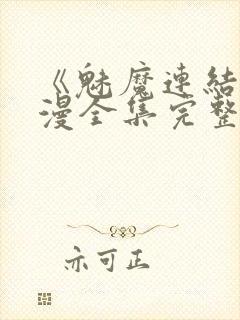 《魅魔連結
漫全集完整
亦可正